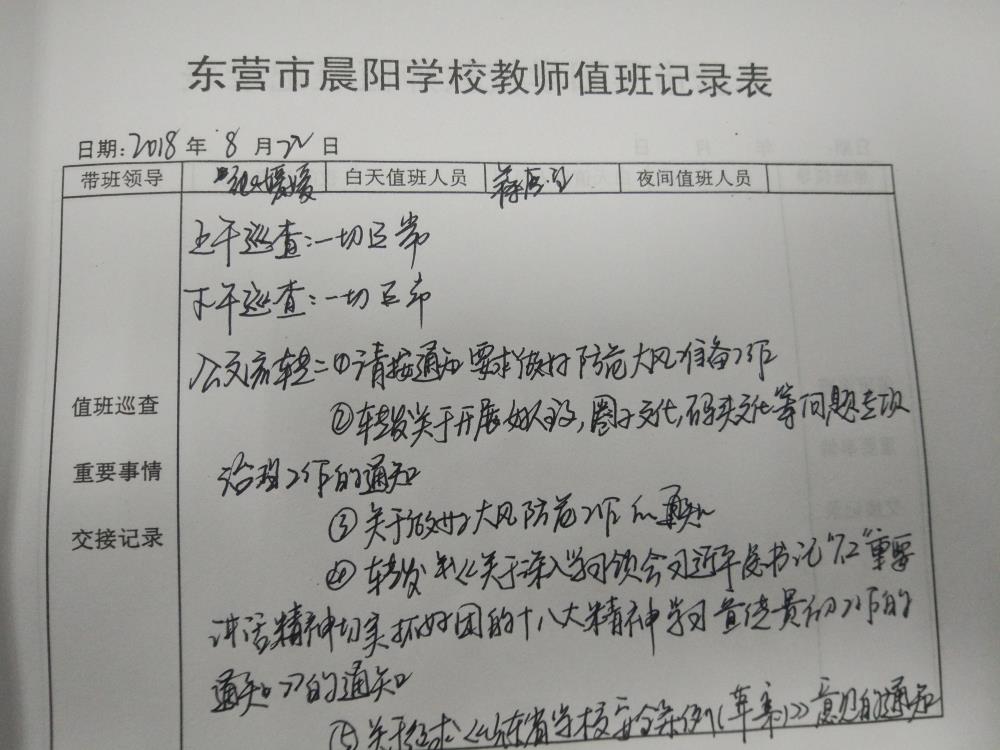 东营市晨阳学校教师值班记录表
日期:2018年8月22日
带班领导 媛媛 白天值班人员 蒋 夜间值班人员
上午巡查:一切正常
下午巡查:一切正常
公文流转:①请按通知要求做好防范大风准备工作
值班巡查
②转发关于开展好人主义,圈子文化,码头文化等问题专项
重要事情
治理工作的通知
③关于做好大风防范工作的通知
交接记录
④转发《关于深入学习领会习近平总书记“7.2”重要
讲话精神切实抓好团的十八大精神学习宣传贯彻工作的
通知》的通知
⑤关于征求《山东省学校安全条例(草案)》意见的通知